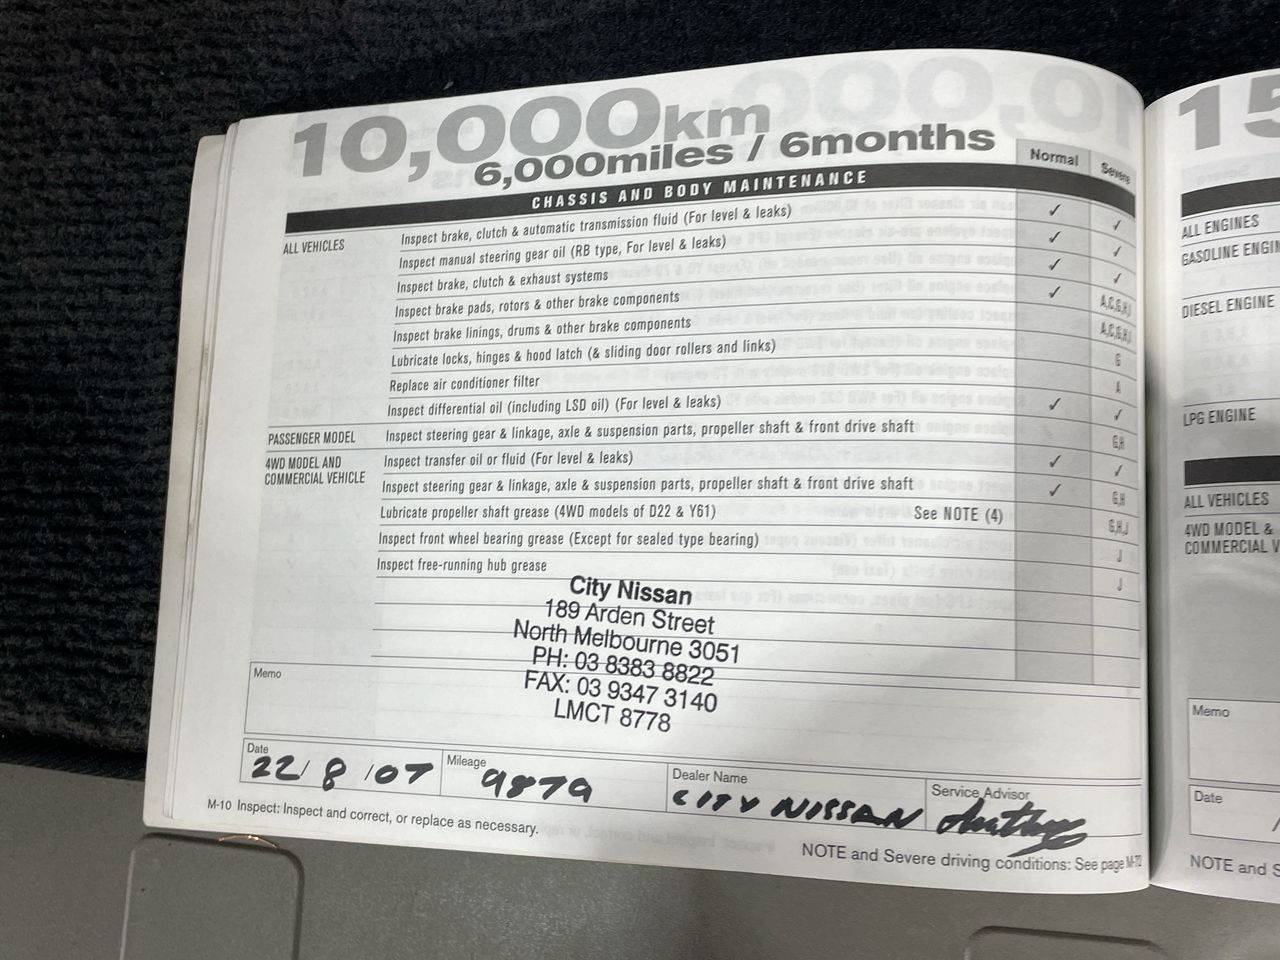 10,000km
6,000miles / 6months
Normal Severe
CHASSIS AND BODY MAINTENANCE
ALL VEHICLES Inspect brake, clutch & automatic transmission fluid (For level & leaks) ✓ ✓
Inspect manual steering gear oil (RB type, For level & leaks) ✓ ✓
Inspect brake, clutch & exhaust systems ✓ ✓
Inspect brake pads, rotors & other brake components ✓ A,C,G,H,I
Inspect brake linings, drums & other brake components A,C,G,H,I
Lubricate locks, hinges & hood latch (& sliding door rollers and links) G
Replace air conditioner filter A
Inspect differential oil (including LSD oil) (For level & leaks) ✓ ✓
PASSENGER MODEL Inspect steering gear & linkage, axle & suspension parts, propeller shaft & front drive shaft G,H
4WD MODEL AND Inspect transfer oil or fluid (For level & leaks) ✓ ✓
COMMERCIAL VEHICLE Inspect steering gear & linkage, axle & suspension parts, propeller shaft & front drive shaft ✓ G,H
Lubricate propeller shaft grease (4WD models of D22 & Y61) See NOTE (4) G,H,J
Inspect front wheel bearing grease (Except for sealed type bearing) J
Inspect free-running hub grease J
City Nissan
189 Arden Street
North Melbourne 3051
PH: 03 8383 8822
FAX: 03 9347 3140
LMCT 8778
Memo
Date 22/8/07 Mileage 9879 Dealer Name CITY NISSAN Service Advisor Anthony
M-10 Inspect: Inspect and correct, or replace as necessary.
NOTE and Severe driving conditions: See page M-72
15
ALL ENGINES
GASOLINE ENGIN
DIESEL ENGINE
LPG ENGINE
ALL VEHICLES
4WD MODEL &
COMMERCIAL V
Memo
Date
NOTE and S